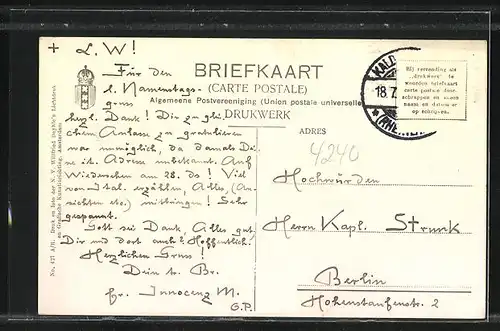 + L. W!
Für den
l. Namenstags-
gruss
herzl. Dank! Dir zu gli
chem Anlasse zu gratulieren
war unmöglich, da damals Di
ne it. Adresse unbekannt. Auf
Wiedersehen am 28. ds! Viel
von Ital. erzählen, Alles, (An
sichten etc.) mitbringen! Sehr
gespannt.
Gott sei Dank, Alles gut.
Dir und dort auch? Hoffentlich!
Herzlichen Gruss!
Dein tr. Br.
fr. Innocenz M.
O.P.
BRIEFKAART
(CARTE POSTALE)
Algemeene Postvereeniging (Union postale universelle)
DRUKWERK
ADRES
4240
KALD
18.7
(RHEINL
Bij verzending als
„drukwerk" te
woorden briefkaart
carte postale door-
schrappen en alleen
naam en datum er
op schrijven.
Hochwürden
Herrn Kapl. Strunk
Berlin
Hohenstaufenstr. 2
No. 471 A/E. Druk en foto der N. V.
en Grafische Kunstinrichting, Amsterdam.